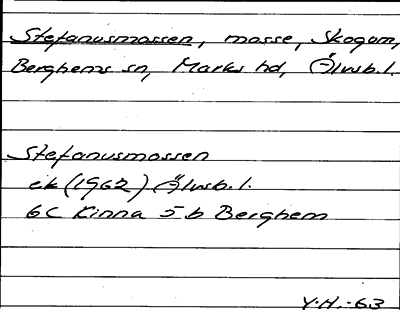 Stefanusmossen, mosse, Skogom,
Berghems sn, Marks hd, Älvsb. l.
Stefanusmossen
ek (1962) Älvsb. l.
6C Kinna 5 b Berghem
Y.H. -63